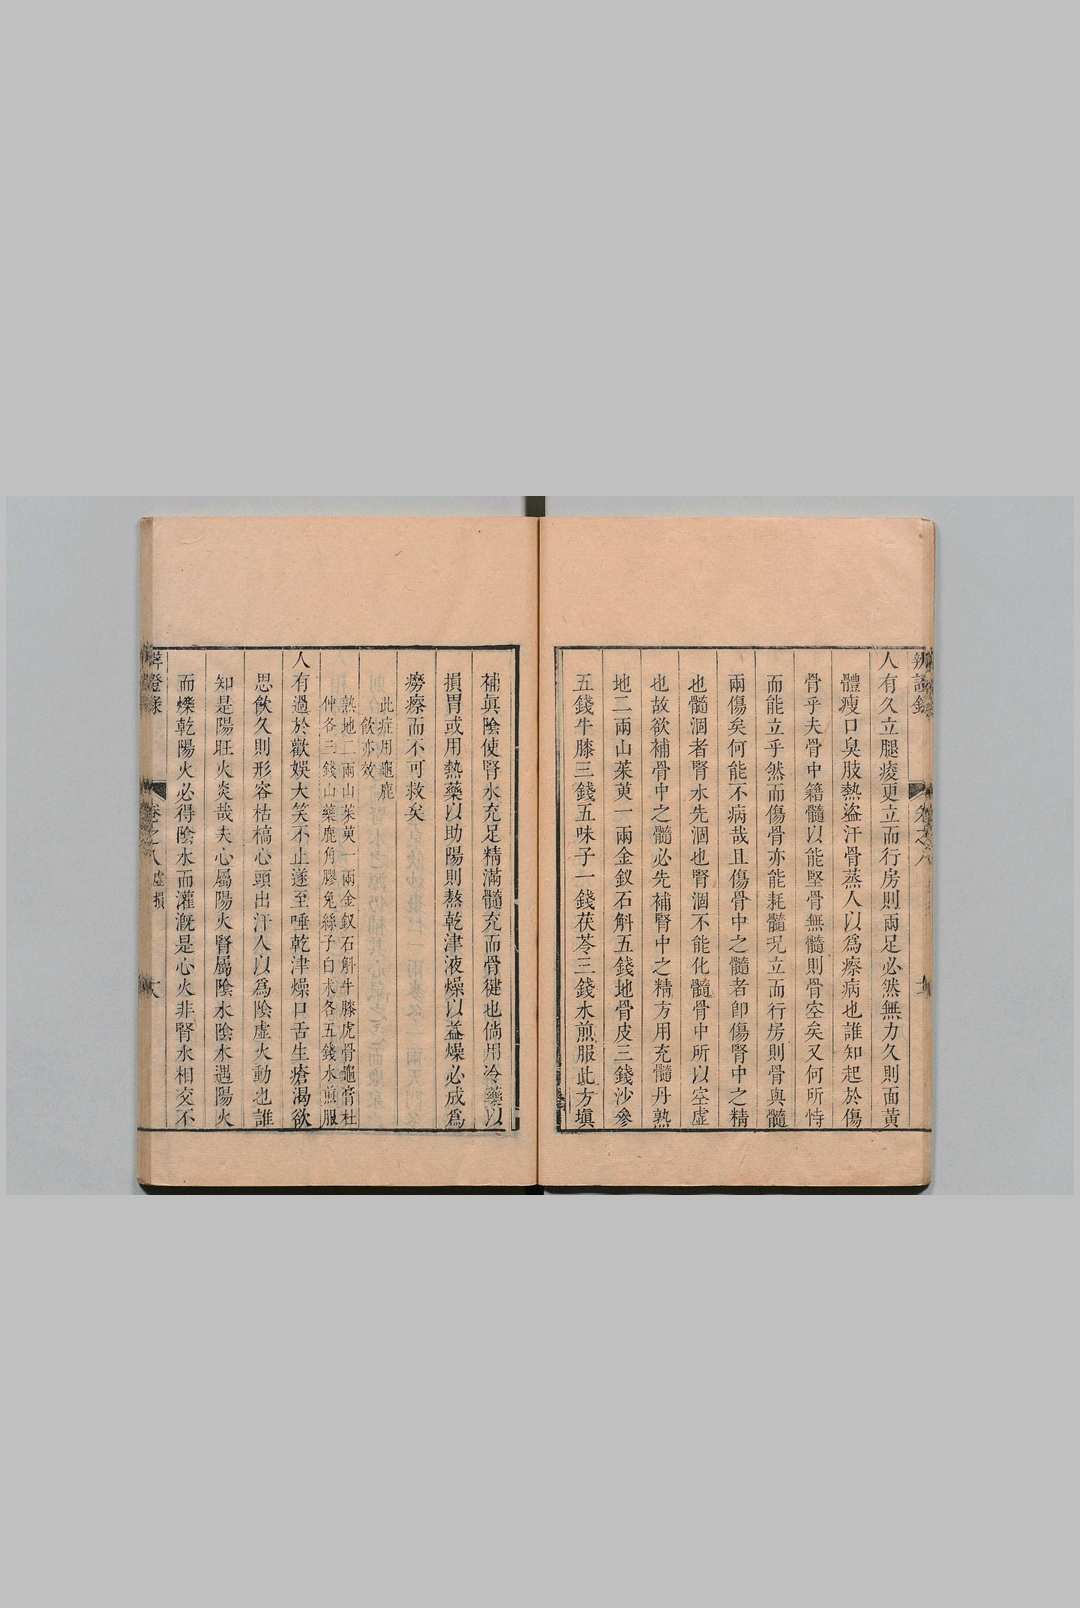 人有久立腿痠更立而行房則兩足必然無力久則面黃
體瘦口臭肢熱盗汗骨蒸人以爲瘵病也誰知起於傷
骨乎夫骨中籍髓以能堅骨無髓則骨空矣又何所恃
而能立乎然而傷骨亦能耗髓况立而行房則骨與髓
兩傷矣何能不病哉且傷骨中之髓者卽傷腎中之精
也髓涸者腎水先涸也腎涸不能化髓骨中所以空虛
也故欲補骨中之髓必先補腎中之精方用充髓丹熟
地二兩山茱萸一兩金釵石斛五錢地骨皮三錢沙參
五錢牛膝三錢五味子一錢茯苓三錢水煎服此方塡
補眞陰使腎水充足精滿髓充而骨健也倘用冷藥以
損胃或用熱藥以助陽則熬乾津液燥以益燥必成爲
癆瘵而不可救矣
此症用龜鹿
飲亦效
熟地二兩山茱萸一兩金釵石斛牛膝虎骨龜膏杜
仲各三錢山藥鹿角膠兔絲子白朮各五錢水煎服
人有過於歡娛大笑不止遂至唾乾津燥口舌生瘡渴欲
思飲久則形容枯槁心頭出汗人以爲陰虛火動也誰
知是陽旺火炎哉夫心屬陽火腎屬陰水陰水遇陽火
而爍乾陽火必得陰水而灌漑是心火非腎水相交不
卷之八虛損